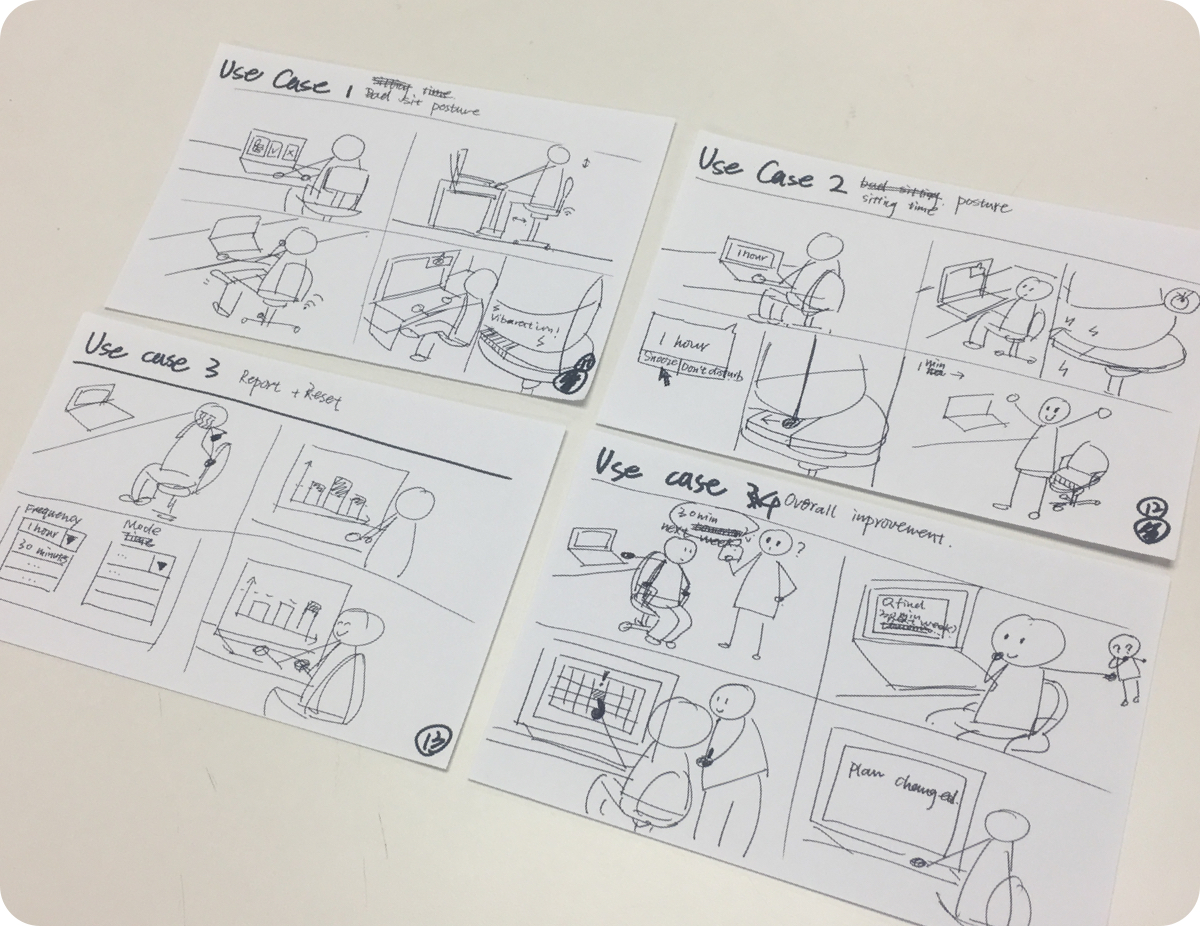 Use Case 1
Bad sit posture
Vibaraction!
Use Case 2
sitting time posture
1 hour
1 hour
Snooze Don't disturb
1 min →
12
Use case 3
Report + Reset
Frequency
1 hour ▼
30 minutes
...
...
Mode
... ▼
...
13
Use case 4 Overall improvement.
30 min
?
Q find
? ?
!
Plan changed.